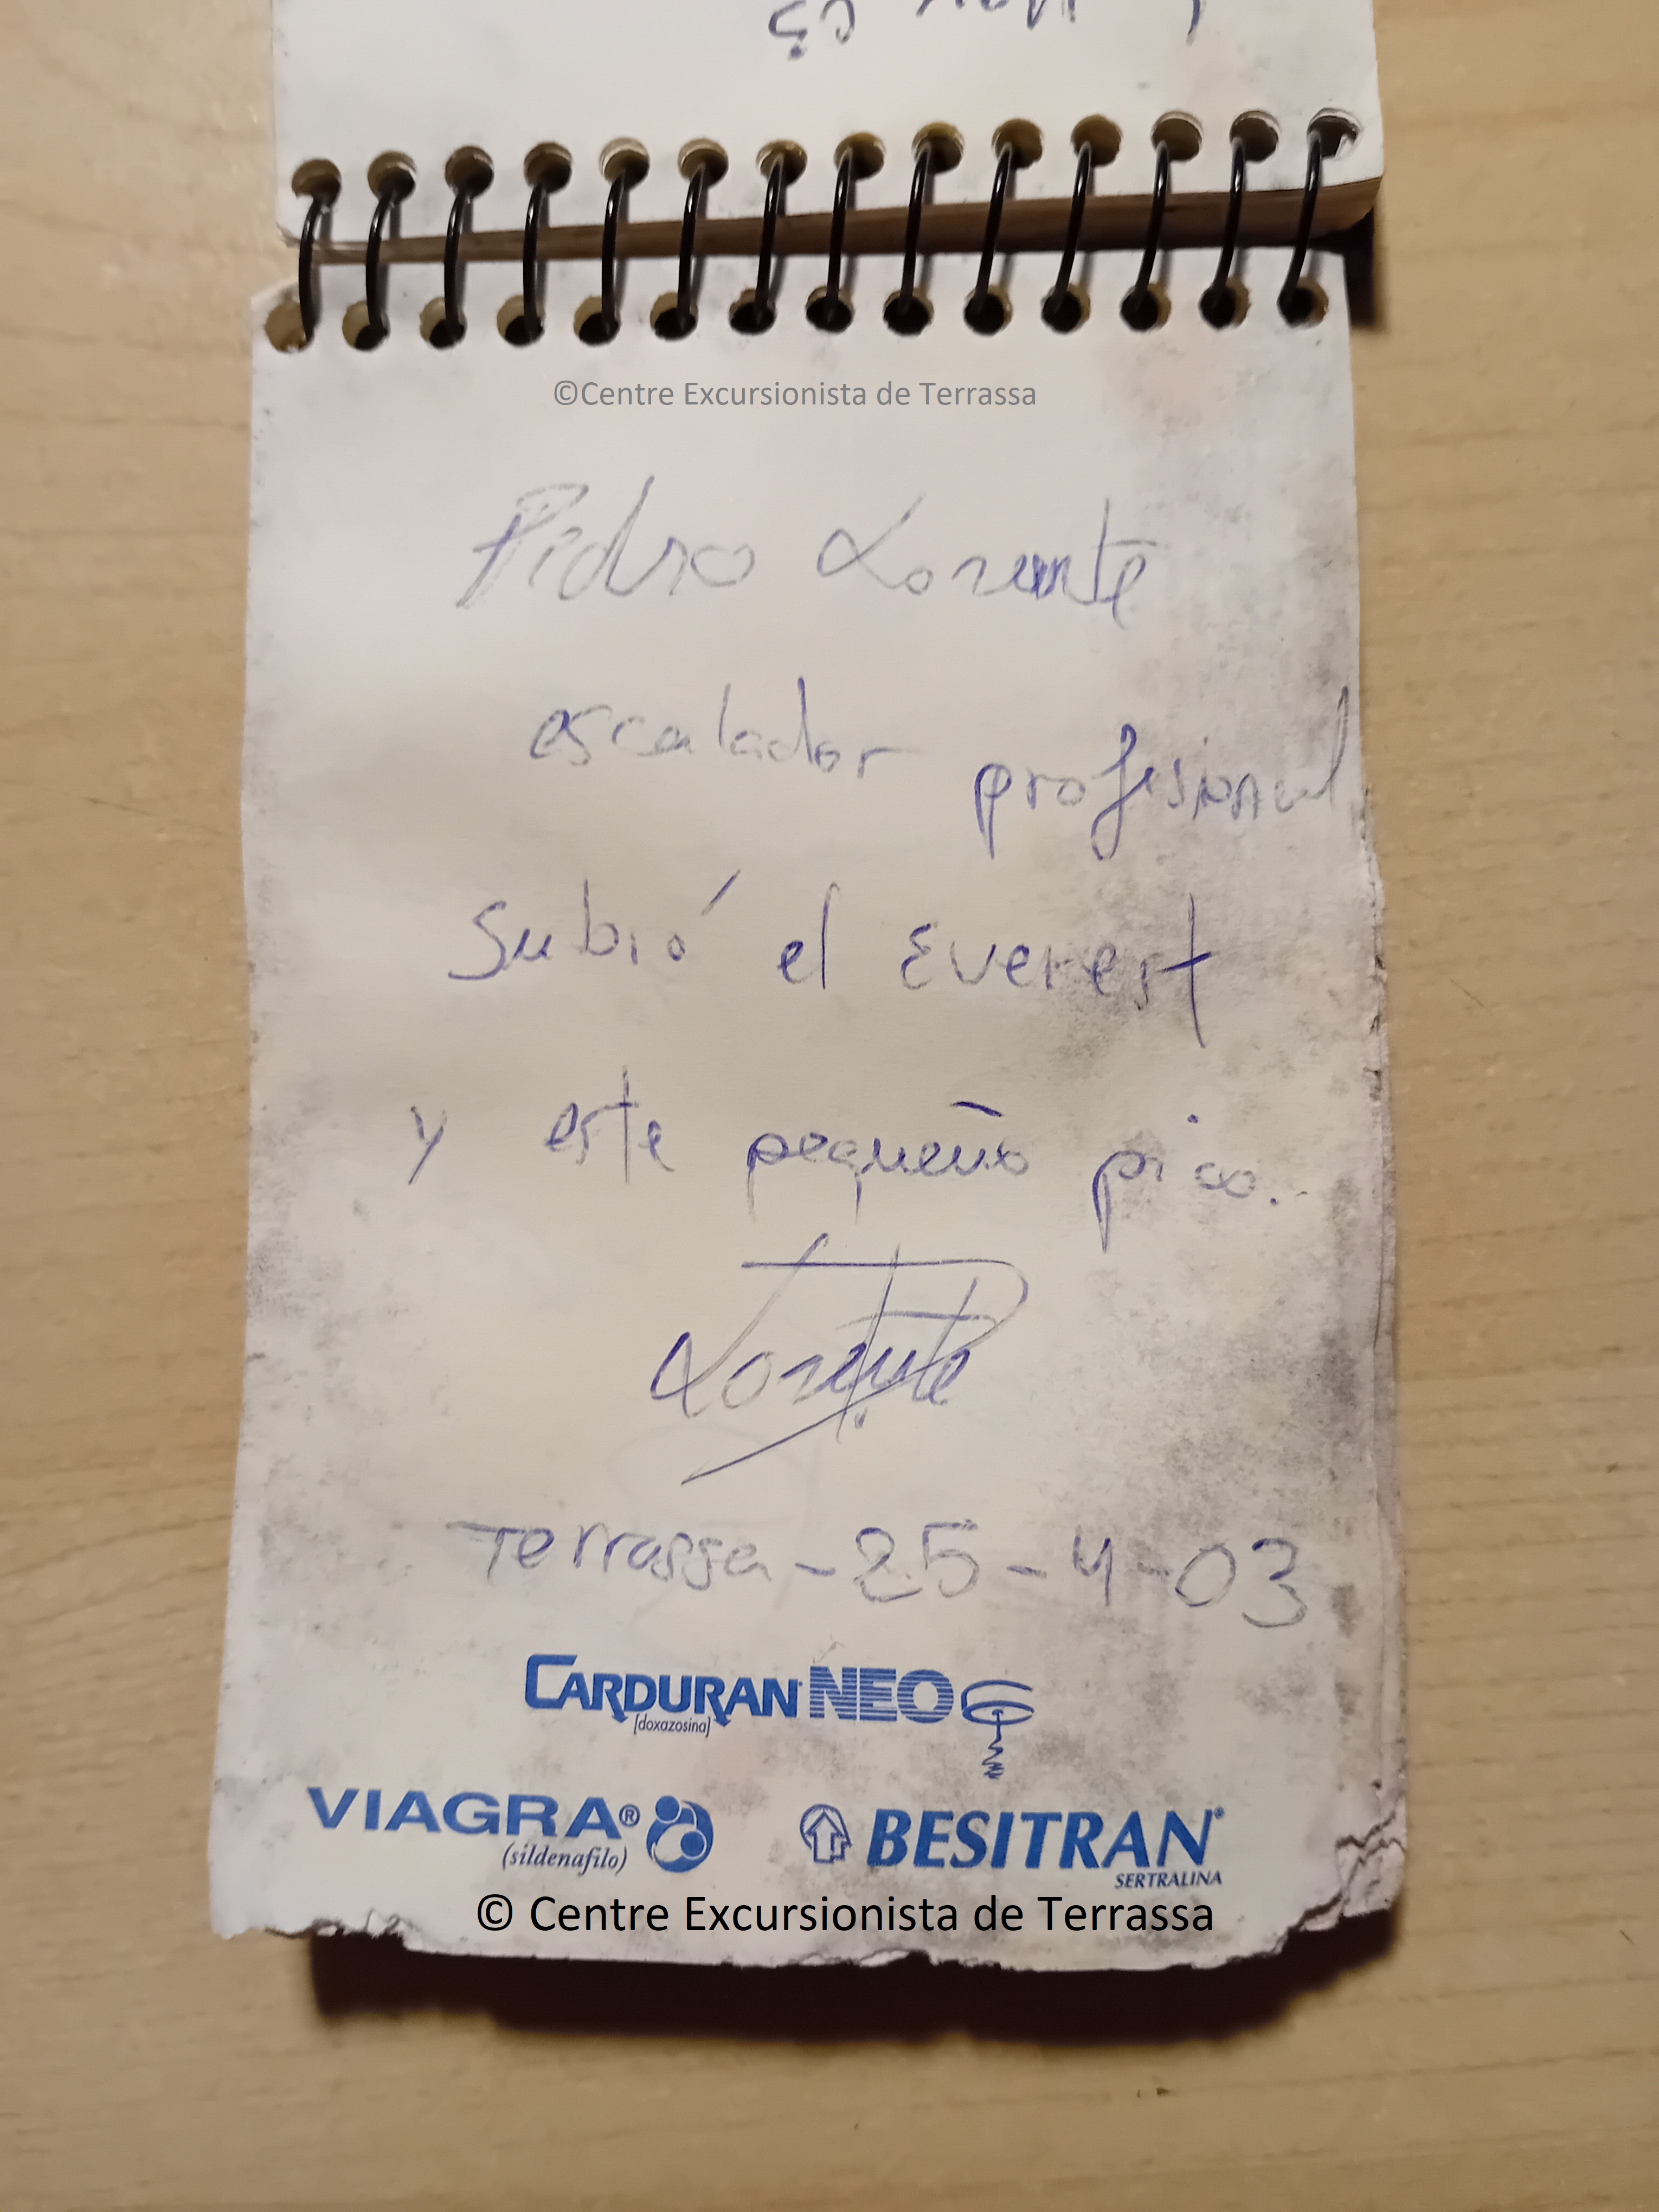 ©Centre Excursionista de Terrassa
Pedro Lorente
escalador profesional
subió el Everest
y este pequeño pico...
Lorente
Terrassa - 25 - 4 - 03
CARDURAN NEO
[doxazosina]
VIAGRA®
(sildenafilo)
BESITRAN®
SERTRALINA
© Centre Excursionista de Terrassa